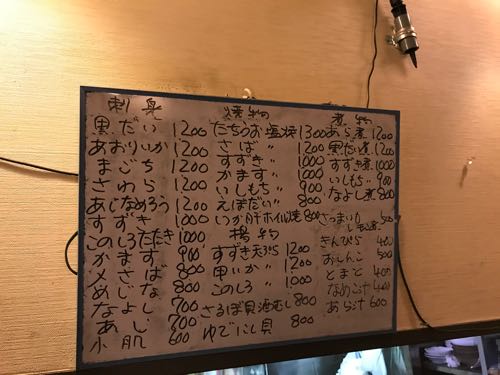 刺身
黒だい 1200
あおりいか 1200
まごち 1200
さわら 1200
あじなめろう 1200
すずき 1000
このしろたたき 1000
かます 900
〆さば 800
めじな 800
なよし 700
あじ 700
小肌 600
焼物
たちうお塩焼 1300
さば 〃 1200
すずき 〃 1000
かます 〃 1000
いしもち 〃 900
えぼだい 〃 800
いか肝ホイル焼 800
揚物
すずき天ぷら 1200
甲いか 〃 1200
このしろ 〃 1000
さるぼ貝酒むし 800
ゆでにし貝 800
煮物
あら煮 1200
黒だい煮 1200
すずき煮 1000
いしもち 〃 900
なよし煮 800
さつまいもレモン煮 500
きんぴら 400
おしんこ 500
とまと 400
なめこ汁 400
あら汁 600